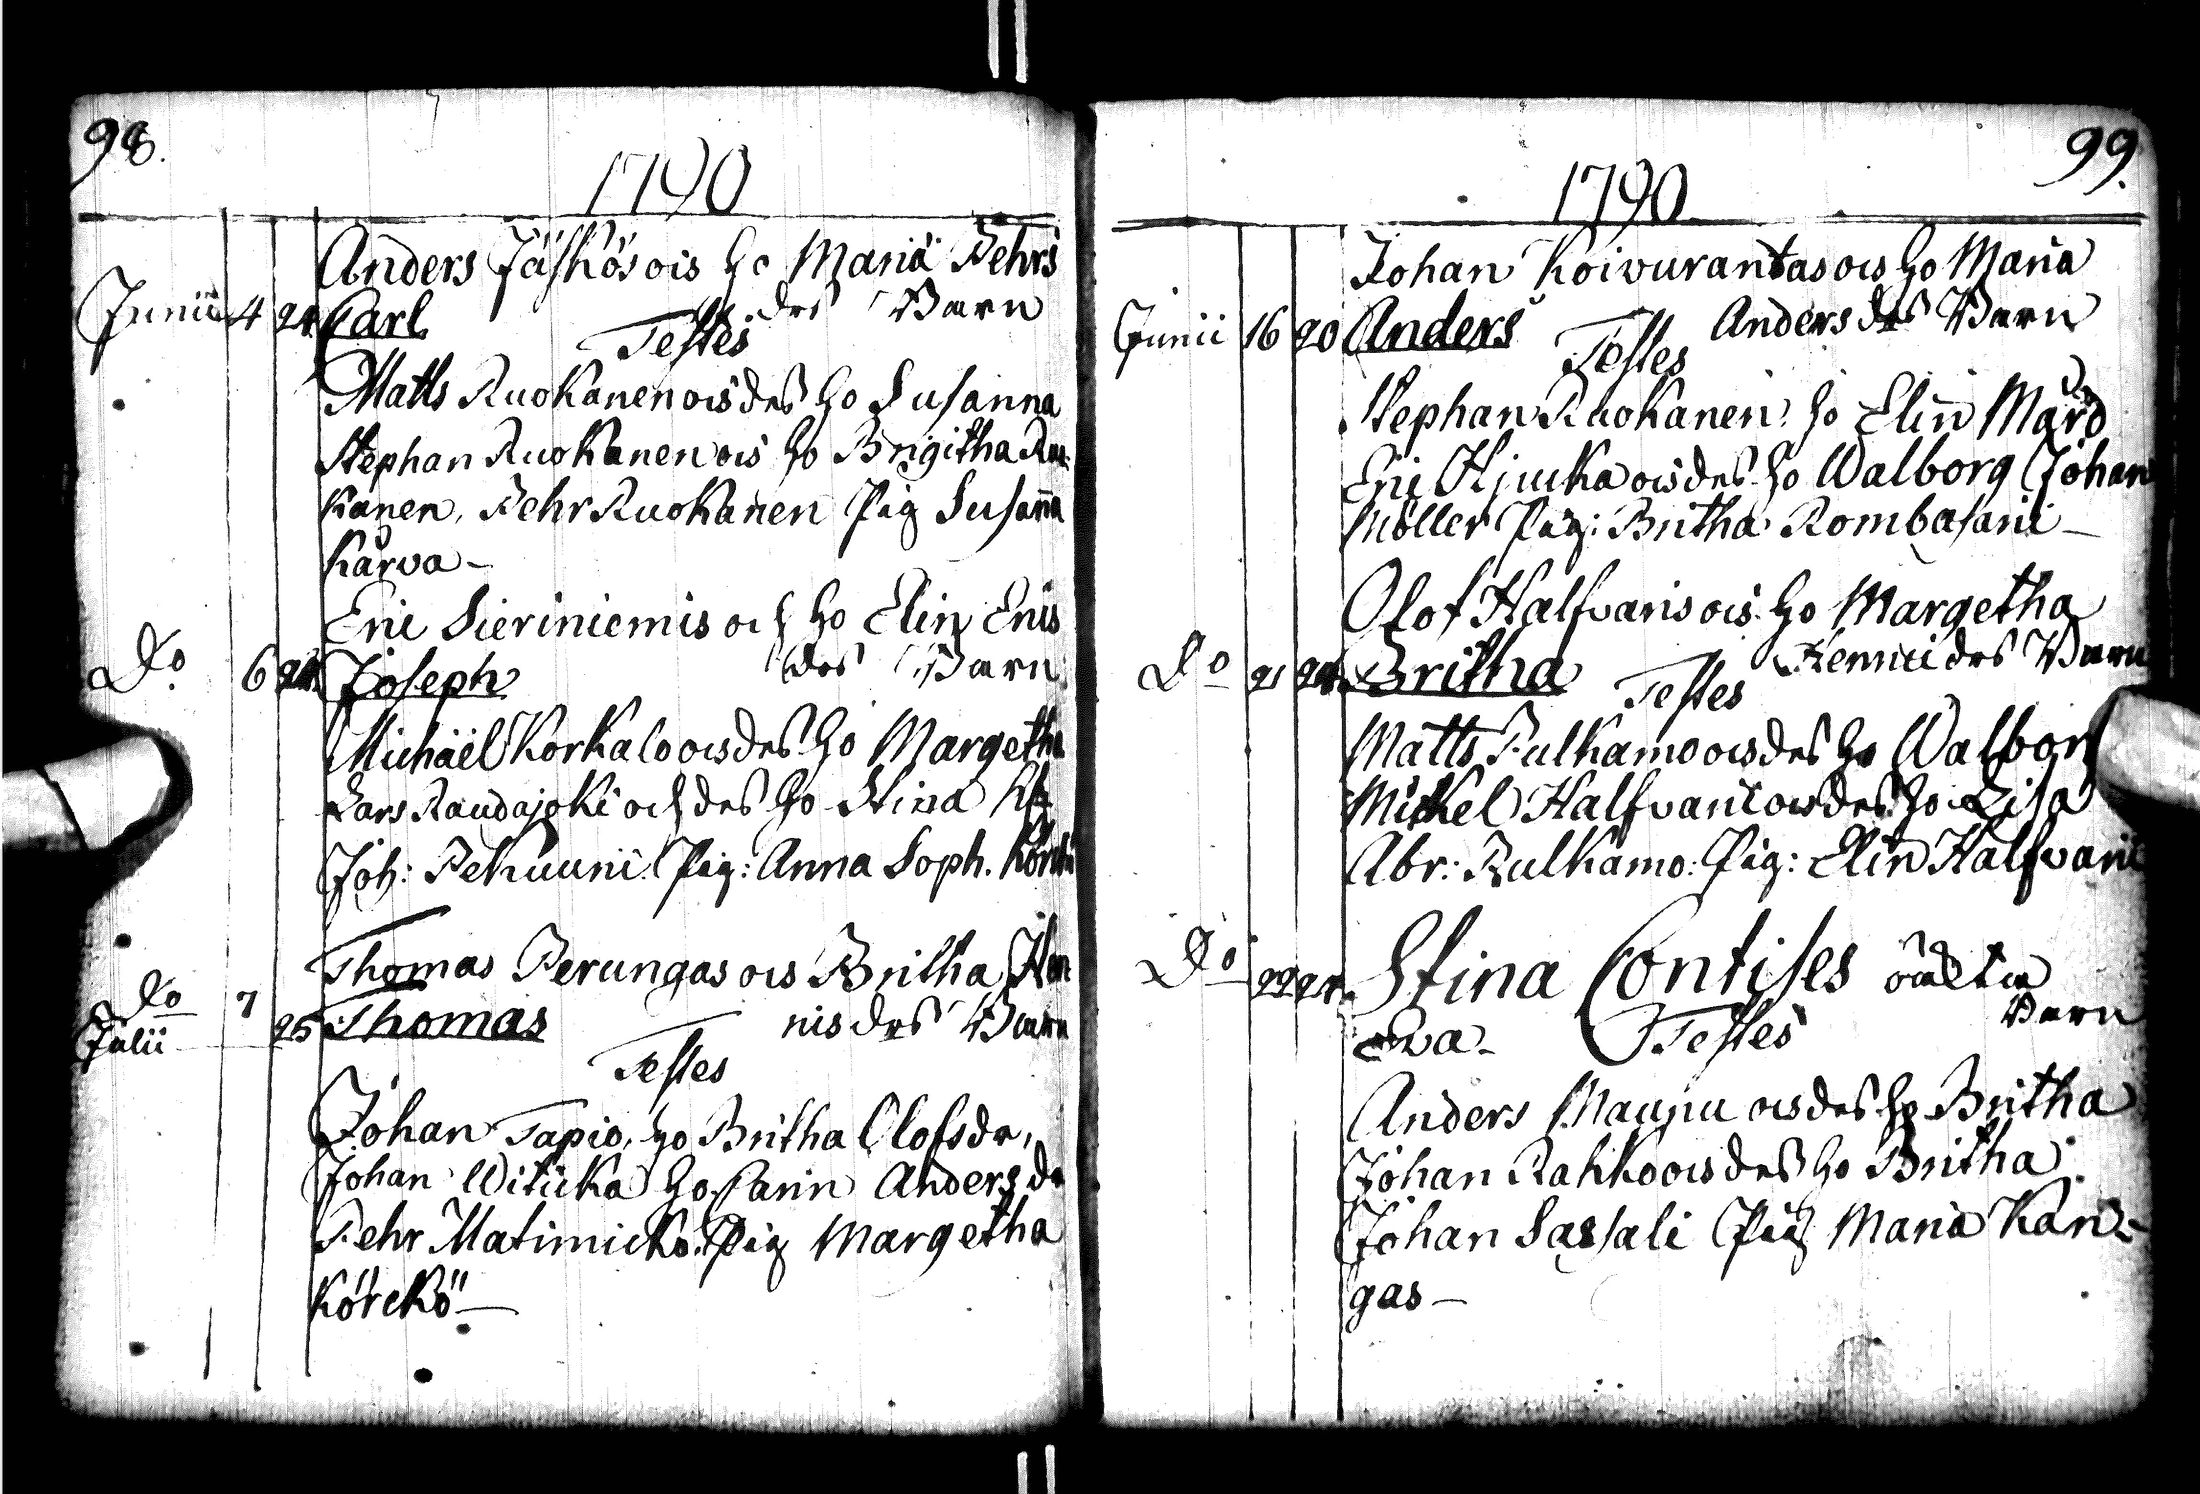 98.
1790
Anders Jäskös ois Ho Maria Pehrs
des Barn
Junii 4 24 Carl
Testes
Matts Ruokanen ois des Ho Susanna
Stephan Ruokanen ois Ho Brigitha Ruo-
kanen, Pehr Ruokanen Pig Susanna
Kärva -
Eric Sieriniemis och Ho Elin Erics
des Barn
Do 6 24 Joseph
Michäel Korkalo ois des Ho Margetha
Lars Raudajoki och des Ho Stina
Joh: Pekuuni Pig: Anna Soph.
Thomas Perungas ois Britha Hen
nis des Barn
Do 7
Julii 25 Thomas
Testes
Johan Tapio, Ho Britha Olofsdr,
Johan Witicka Ho Carin Anders dr
Pehr Matimicko. Pig Margetha
Körckö -
99.
1790
Johan Koivurantas ois Ho Maria
Anders des Barn
Junii 16 20 Anders
Testes
Stephan Ruokanen, Ho Elin Mård
Eric Hjucka ois des Ho Walborg Johan
Möller Pig: Britha Rombasani -
Olof Halfvaris ois Ho Margetha
Kemiides Barn
Do 21 24 Britha
Testes
Matts Pulkamo ois des Ho Walbor
Mickel Halfvari ois des Ho Lisa
Abr: Pulkamo: Pig: Elin Halfvari
Stina Contises oäckta
Barn
Do 22 24
Eva - Testes
Anders Maunu ois des Ho Britha
Johan Rahko ois des Ho Britha
Johan Sassali Pig Maria Kan-
gas -